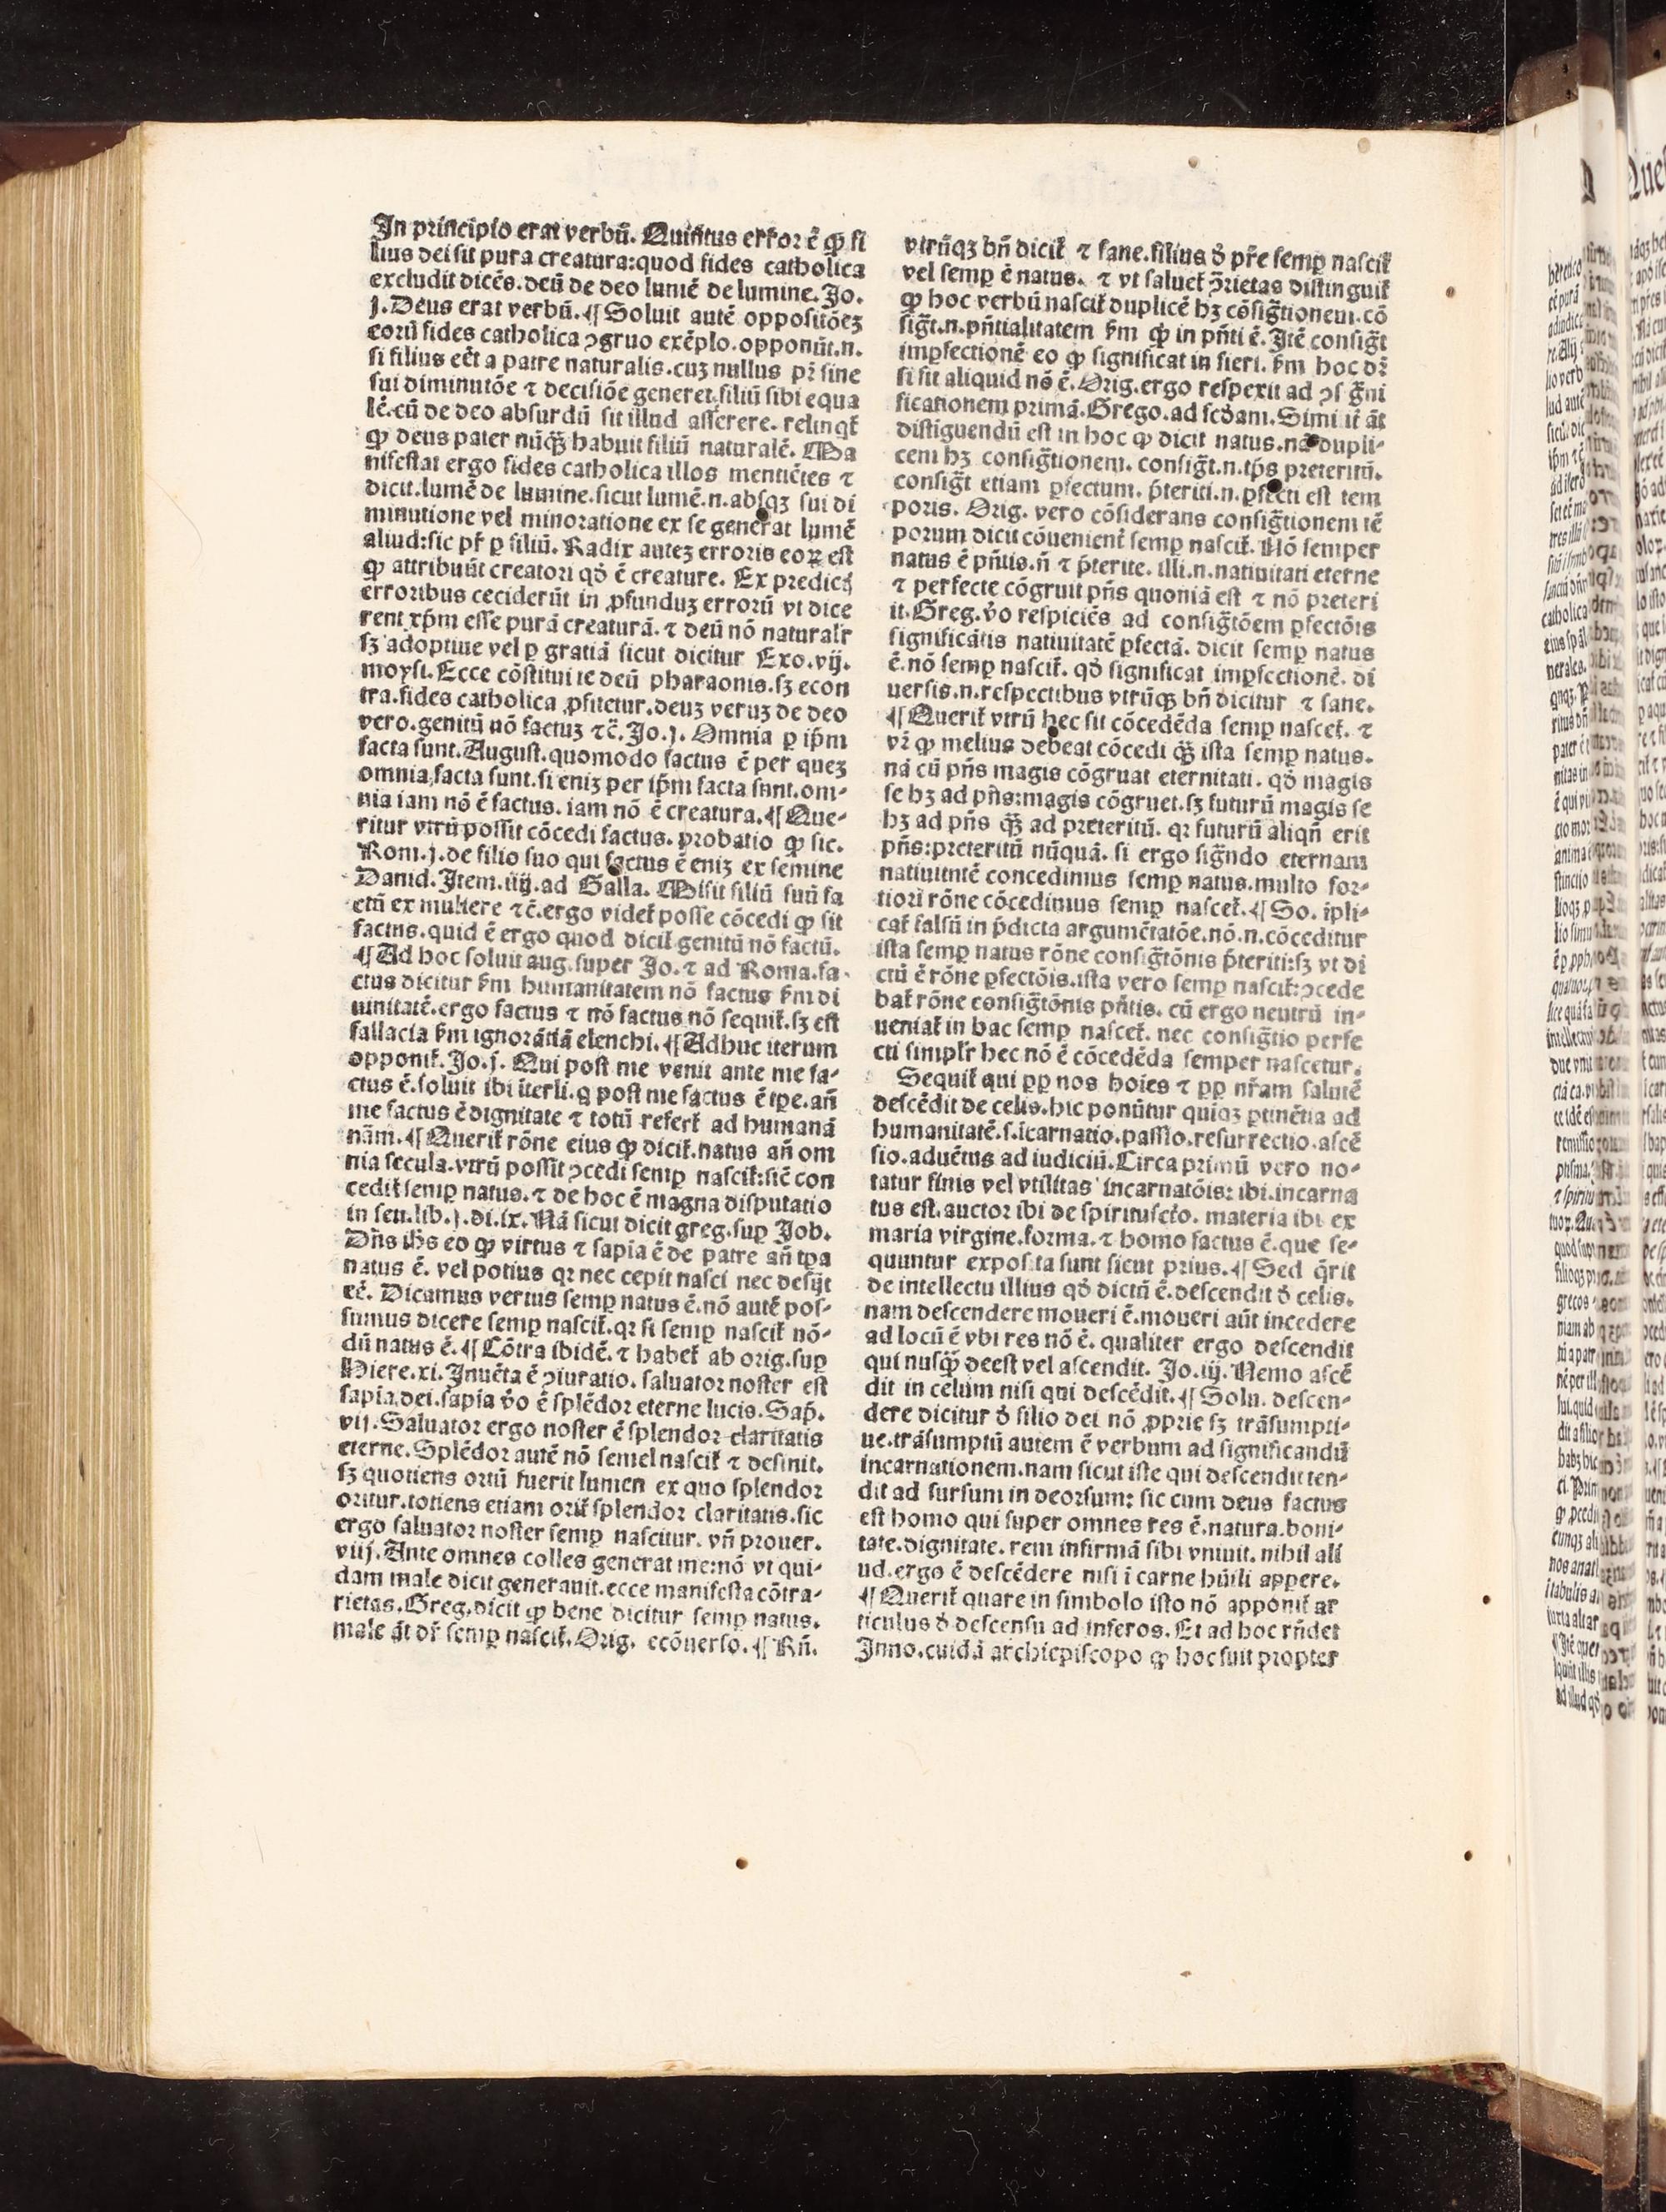 In principio erat verbū. Quintus error ē ꝙ fi
lius dei sit pura creatura:quod fides catholica
excludit dicēs.deū de deo lumē de lumine. Jo.
j. Deus erat verbū. ¶ Soluit autē oppositōeꝫ
eorū fides catholica ꝯgruo exēplo.opponūt.n.
si filius eēt a patre naturalis.cuꝫ nullus pr̄ sine
sui diminutōe ⁊ decisiōe generet filiū sibi equa
lē.cū de deo absurdū sit illud asserere. relinqt̄
ꝙ deus pater nūqꝫ̄ habuit filiū naturalē. Ma
nifestat ergo fides catholica illos mentiētes ⁊
dicit.lumē de lumine.sicut lumē.n.absqꝫ sui di
minutione vel minoratione ex se generat lumē
aliud:sic pr̄ ꝑ filiū. Radix auteꝫ erroris eoꝝ est
ꝙ attribuūt creatori qđ ē creature. Ex predict̄
erroribus ceciderūt in ꝓfunduꝫ errorū vt dice
rent xp̄m esse purā creaturā. ⁊ deū nō naturalr̄
sꝫ adoptiue vel ꝑ gratiā sicut dicitur Exo.vij.
moysi. Ecce cōstitui te deū pharaonis.sꝫ econ
tra.fides catholica ꝓfitetur.deuꝫ veruꝫ de deo
vero.genitū nō factuꝫ ⁊c̄. Jo.j. Omnia ꝑ ip̄m
facta sunt. August. quomodo factus ē per queꝫ
omnia facta sunt.si eniꝫ per ip̄m facta sunt.om-
nia iam nō ē factus. iam nō ē creatura.¶ Que-
ritur vtrū possit cōcedi factus. probatio ꝙ sic.
Rom.j.de filio suo qui factus ē eniꝫ ex semine
Dauid. Item.iiij.ad Galla. Misit filiū suū fa
ctū ex muliere ⁊c̄.ergo videt̄ posse cōcedi ꝙ sit
factus.quid ē ergo quod dicit̄ genitū nō factū.
¶ Ad hoc soluit aug.super Jo.⁊ ad Roma.fa-
ctus dicitur ẜm humanitatem nō factus ẜm di
uinitatē.ergo factus ⁊ nō factus nō sequit̄.sꝫ est
fallacia ẜm ignorātiā elenchi.¶ Adhuc iterum
opponit̄. Jo.j. Qui post me venit ante me fa-
ctus ē.soluit ibi īterli.q̄ post me factus ē tp̄e.an̄
me factus ē dignitate ⁊ totū refert̄ ad humanā
nām.¶ Querit̄ rōne eius ꝙ dicit̄.natus an̄ om
nia secula.vtrū possit ꝯcedi semꝑ nascit̄:sic̄ con
cedit̄ semꝑ natus. ⁊ de hoc ē magna disputatio
in sen.lib.j.di.ix. Nā sicut dicit greg.suꝑ Job.
Dn̄s ih̄s eo ꝙ virtus ⁊ sapīa ē de patre an̄ tp̄a
natus ē. vel potius qꝛ nec cepit nasci nec desijt
eē. Dicamus verius semꝑ natus ē.nō autē pos-
sumus dicere semꝑ nascit̄.qꝛ si semꝑ nascit̄ nō-
dū natus ē.¶ Cōtra ibidē. ⁊ habet̄ ab orig.suꝑ
Hiere.xi. Inuēta ē ꝯiuratio. saluator noster est
sapīa dei.sapīa v̊o ē splēdor eterne lucis. Sap̄.
vij. Saluator ergo noster ē splendor claritatis
eterne. Splēdor autē nō semel nascit̄ ⁊ desinit.
sꝫ quotiens ortū fuerit lumen ex quo splendor
oritur.totiens etiam orit̄ splendor claritatis.sic
ergo saluator noster semꝑ nascitur. vn̄ prouer.
viij. Ante omnes colles generat me:nō vt qui-
dam male dicit generauit.ecce manifesta cōtra-
rietas. Greg.dicit ꝙ bene dicitur semꝑ natus.
male āt dr̄ semꝑ nascit̄. Orig. ecōuerso.¶ Rn̄.
vtrūqꝫ bn̄ dicit̄ ⁊ sane.filius đ pr̄e semꝑ nascit̄
vel semꝑ ē natus. ⁊ vt saluet̄ ꝯ̄rietas distinguit̄
ꝙ hoc verbū nascit̄ duplicē hꝫ cōsiḡtionem.cō
siḡt.n.pn̄tialitatem ẜm ꝙ in pn̄ti ē. Itē consiḡt
imꝑfectionē eo ꝙ significat in fieri. ẜm hoc dꝛ̄
si sit aliquid nō ē. Orig.ergo respexit ad ꝯsiḡni
ficationem primā. Grego.ad scđam. Simi it̄ āt
distiguendū est in hoc ꝙ dicit natus.nā dupli-
cem hꝫ consiḡtionem. consiḡt.n.tp̄s preteritū.
consiḡt etiam ꝑfectum. p̄teriti.n.ꝑfecti est tem
poris. Orig. vero cōsiderans consiḡtionem tē
porum dicit cōuenient̄ semꝑ nascit̄. Nō semper
natus ē pn̄tis.n̄ ⁊ p̄terite. illi.n.natiuitati eterne
⁊ perfecte cōgruit pn̄s quoniā est ⁊ nō preteri
it. Greg.v̊o respiciēs ad consiḡtōem ꝑfectōis
significātis natiuitatē ꝑfectā. dicit semꝑ natus
ē.nō semꝑ nascit̄. qđ significat imꝑfectionē. di
uersis.n.respectibus vtrūqꝫ bn̄ dicitur ⁊ sane.
¶ Querit̄ vtrū hec sit cōcedēda semꝑ nascet̄. ⁊
vr̄ ꝙ melius debeat cōcedi qꝫ̄ ista semꝑ natus.
nā cū pn̄s magis cōgruat eternitati. qđ magis
se hꝫ ad pn̄s:magis cōgruet.sꝫ futurū magis se
hꝫ ad pn̄s qꝫ̄ ad preteritū. qꝛ futurū aliqn̄ erit
pn̄s:preteritū nūquā. si ergo siḡndo eternam
natiuitatē concedimus semꝑ natus.multo for-
tiori rōne cōcedimus semꝑ nascet̄.¶ So. ipli-
cat̄ falsū in p̄dicta argumētatōe.nō.n.cōceditur
ista semꝑ natus rōne consiḡtōnis p̄teriti:sꝫ vt di
ctū ē rōne ꝑfectōis.ista vero semꝑ nascit̄:ꝯcede
bat̄ rōne consiḡtōnis pn̄tis. cū ergo neutrū in-
ueniat̄ in hac semꝑ nascet̄. nec consiḡtio perfe
cti simplr̄ hec nō ē cōcedēda semper nascetur.
Sequit̄ qui ꝓꝑ nos hoīes ⁊ ꝓꝑ nr̄am salutē
descēdit de celis.hic ponūtur quīqꝫ ꝑtinētia ad
humanitatē.s.īcarnatio.passio.resurrectio.ascē
sio.aduētus ad iudiciū. Circa primū vero no-
tatur finis vel vtilitas incarnatōis: ibi.incarna
tus est.auctor ibi de spiritusctō. materia ibi ex
maria virgine.forma. ⁊ homo factus ē.que se-
quuntur exposita sunt sicut prius.¶ Sed q̄rit̄
de intellectu illius qđ dictū ē.descendit đ celis.
nam descendere moueri ē.moueri aūt incedere
ad locū ē vbi res nō ē. qualiter ergo descendit
qui nusqꝫ̄ deest vel ascendit. Jo.iij. Nemo ascē
dit in celum nisi qui descēdit.¶ Solu. descen-
dere dicitur đ filio dei nō ꝓprie sꝫ trāsumpti-
ue.trāsumptū autem ē verbum ad significandū
incarnationem.nam sicut iste qui descendit ten-
dit ad sursum in deorsum: sic cum deus factus
est homo qui super omnes res ē.natura.boni-
tate.dignitate. rem infirmā sibi vniuit. nihil ali
ud.ergo ē descēdere nisi ī carne hūili appere.
¶ Querit̄ quare in simbolo isto nō apponit̄ ar
ticulus đ descensu ad inferos. Et ad hoc rn̄det
Inno.cuidā archiepiscopo ꝙ hoc fuit propter